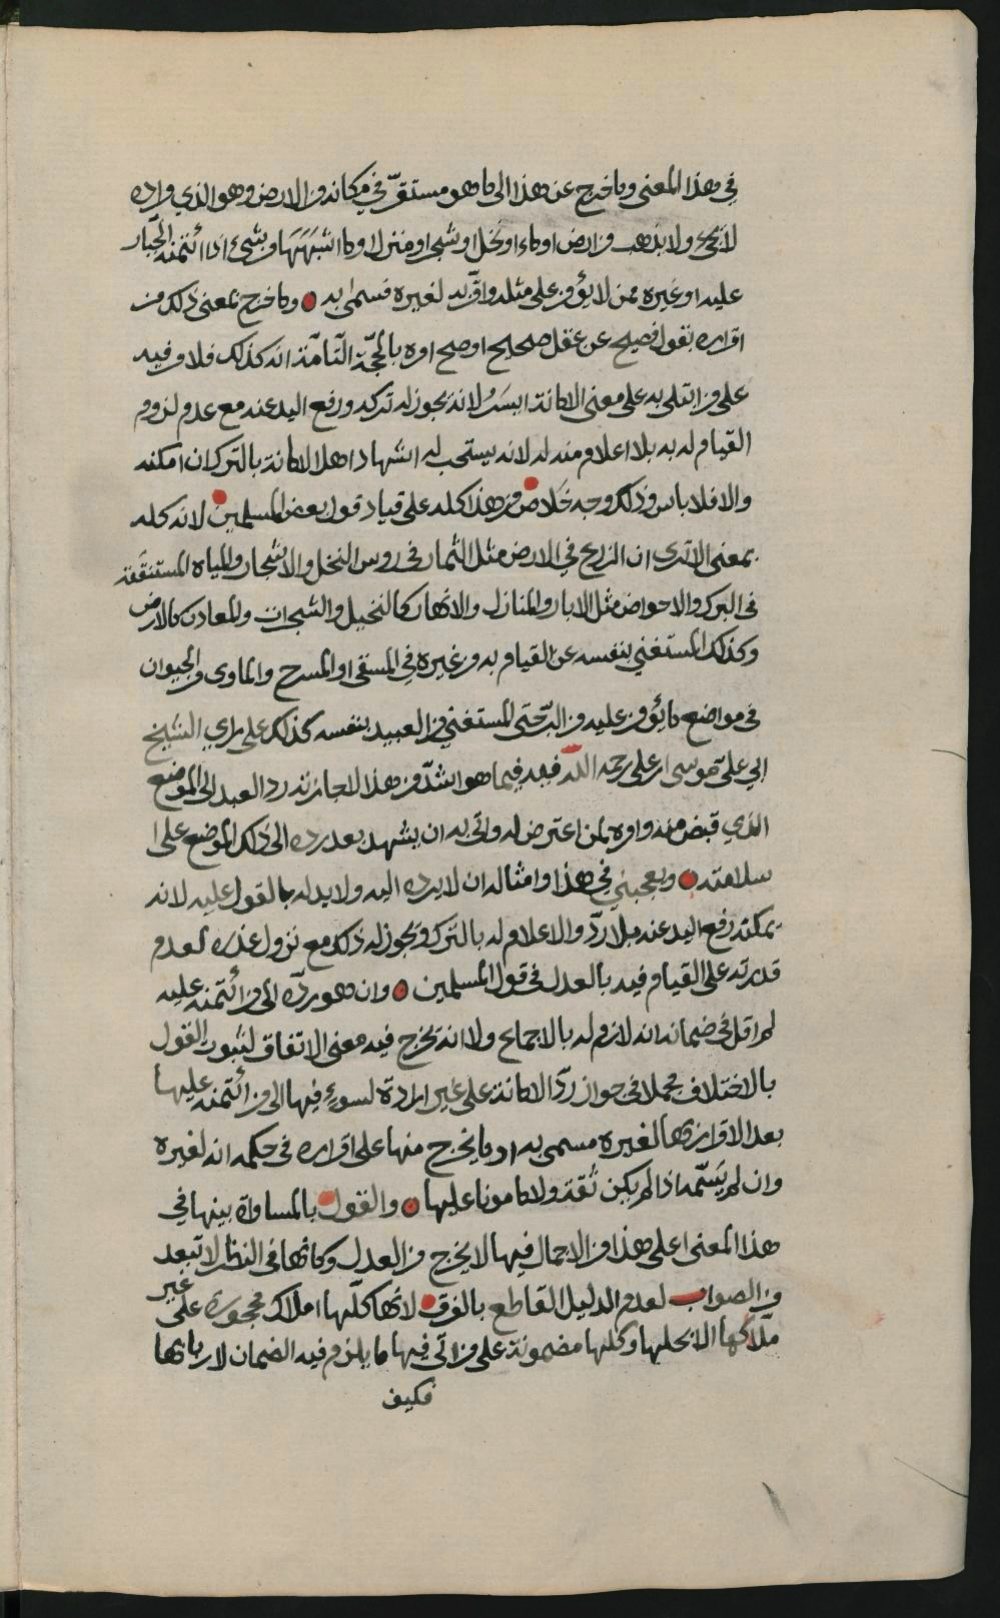 في هذا المعنى وما خرج عن هذا الى ما هو مستقرّ في مكانه من الارض وهو الذي واره
لا يجيء ولا يذهب من ارض او ماء او نخل او شجر او منزل او ما اشبهها من شيء اذا ائتمنه الجبار
عليه او غيره ممن لا يؤمن على مثله واقرّ به لغيره فسمى به وما خرج بمعنى ذلك من
اقراره بقول فصيح عن عقل صحيح او صح اوه بالحجّة التّامّة انه كذلك فلا من فيه
على من ابتلى به على معنى الامانة ايسر لانه يجوز له تركه ورفع اليد عنه مع عدم لزوم
القيام له به بلا اعلام منه له لانه يستحب له اشهاد اهل الامانة بالترك ان امكنه
والا فلا باس وذلك وجه خلاص من هذا كله على قياد قول بعض المسلمين لانه كله
بمعنى الا ترى ان الزرع في الارض مثل الثمار في روس النخل والاشجار والمياه المستنقعة
في البرك والاحواض مثل الابار والمنازل والانهار كالنخيل والشجرات والمعادن كالارض
وكذلك المستغني بنفسه عن القيام به من غيره في المسقى او المسرح والماوى من الحيوان
في مواضع ما يؤمن عليه من البر حتى المستغني من العبيد بنفسه كذلك على راي الشيخ
ابي علي موسى بن علي رحمه الله فبعد فيما هو اشدّ من هذا لاجازته رد العبد الى الموضع
الذي قبض منه وامره لمن اعترض له واتى به ان يشهد بعد رده الى ذلك الموضع على
سلامته ويعجبني في هذا وامثاله ان لا يرده اليه ولا يدله بالقول عليه لانه
يمكنه رفع اليد عنه بلا ردّ والاعلام له بالترك ويجوز له ذلك مع نزول عذره لعدم
قدرته على القيام فيه بالعدل في قول المسلمين وان هو ردّه الى من ائتمنه عليه
لم اقل في ضمانه انه لازم له بالاجماع ولا انه يخرج فيه معنى الاتفاق لثبوت القول
بالاختلاف مجملا في جواز ردّ الامانة على غير ارادة لسوء فيها الى من ائتمنه عليها
بعد الاقرار بها لغيره مسمى به او ما يخرج منها على اقراره في حكمه انه لغيره
وان لم يسمّه اذا لم يكن ثقة ولا مامونا عليها والقول بالمساواة بينها في
هذا المعنى على هذا من الاجمال فيها لا يخرج من العدل وكانها في النظر لا تبعد
من الصواب لعدم الدليل القاطع بالفرق لانها كلّها املاك محجورة على غير
ملّاكها الا بحلها وكلها مضمونة على من اتى فيها ما يلزم فيه الضمان لاربابها
فكيف